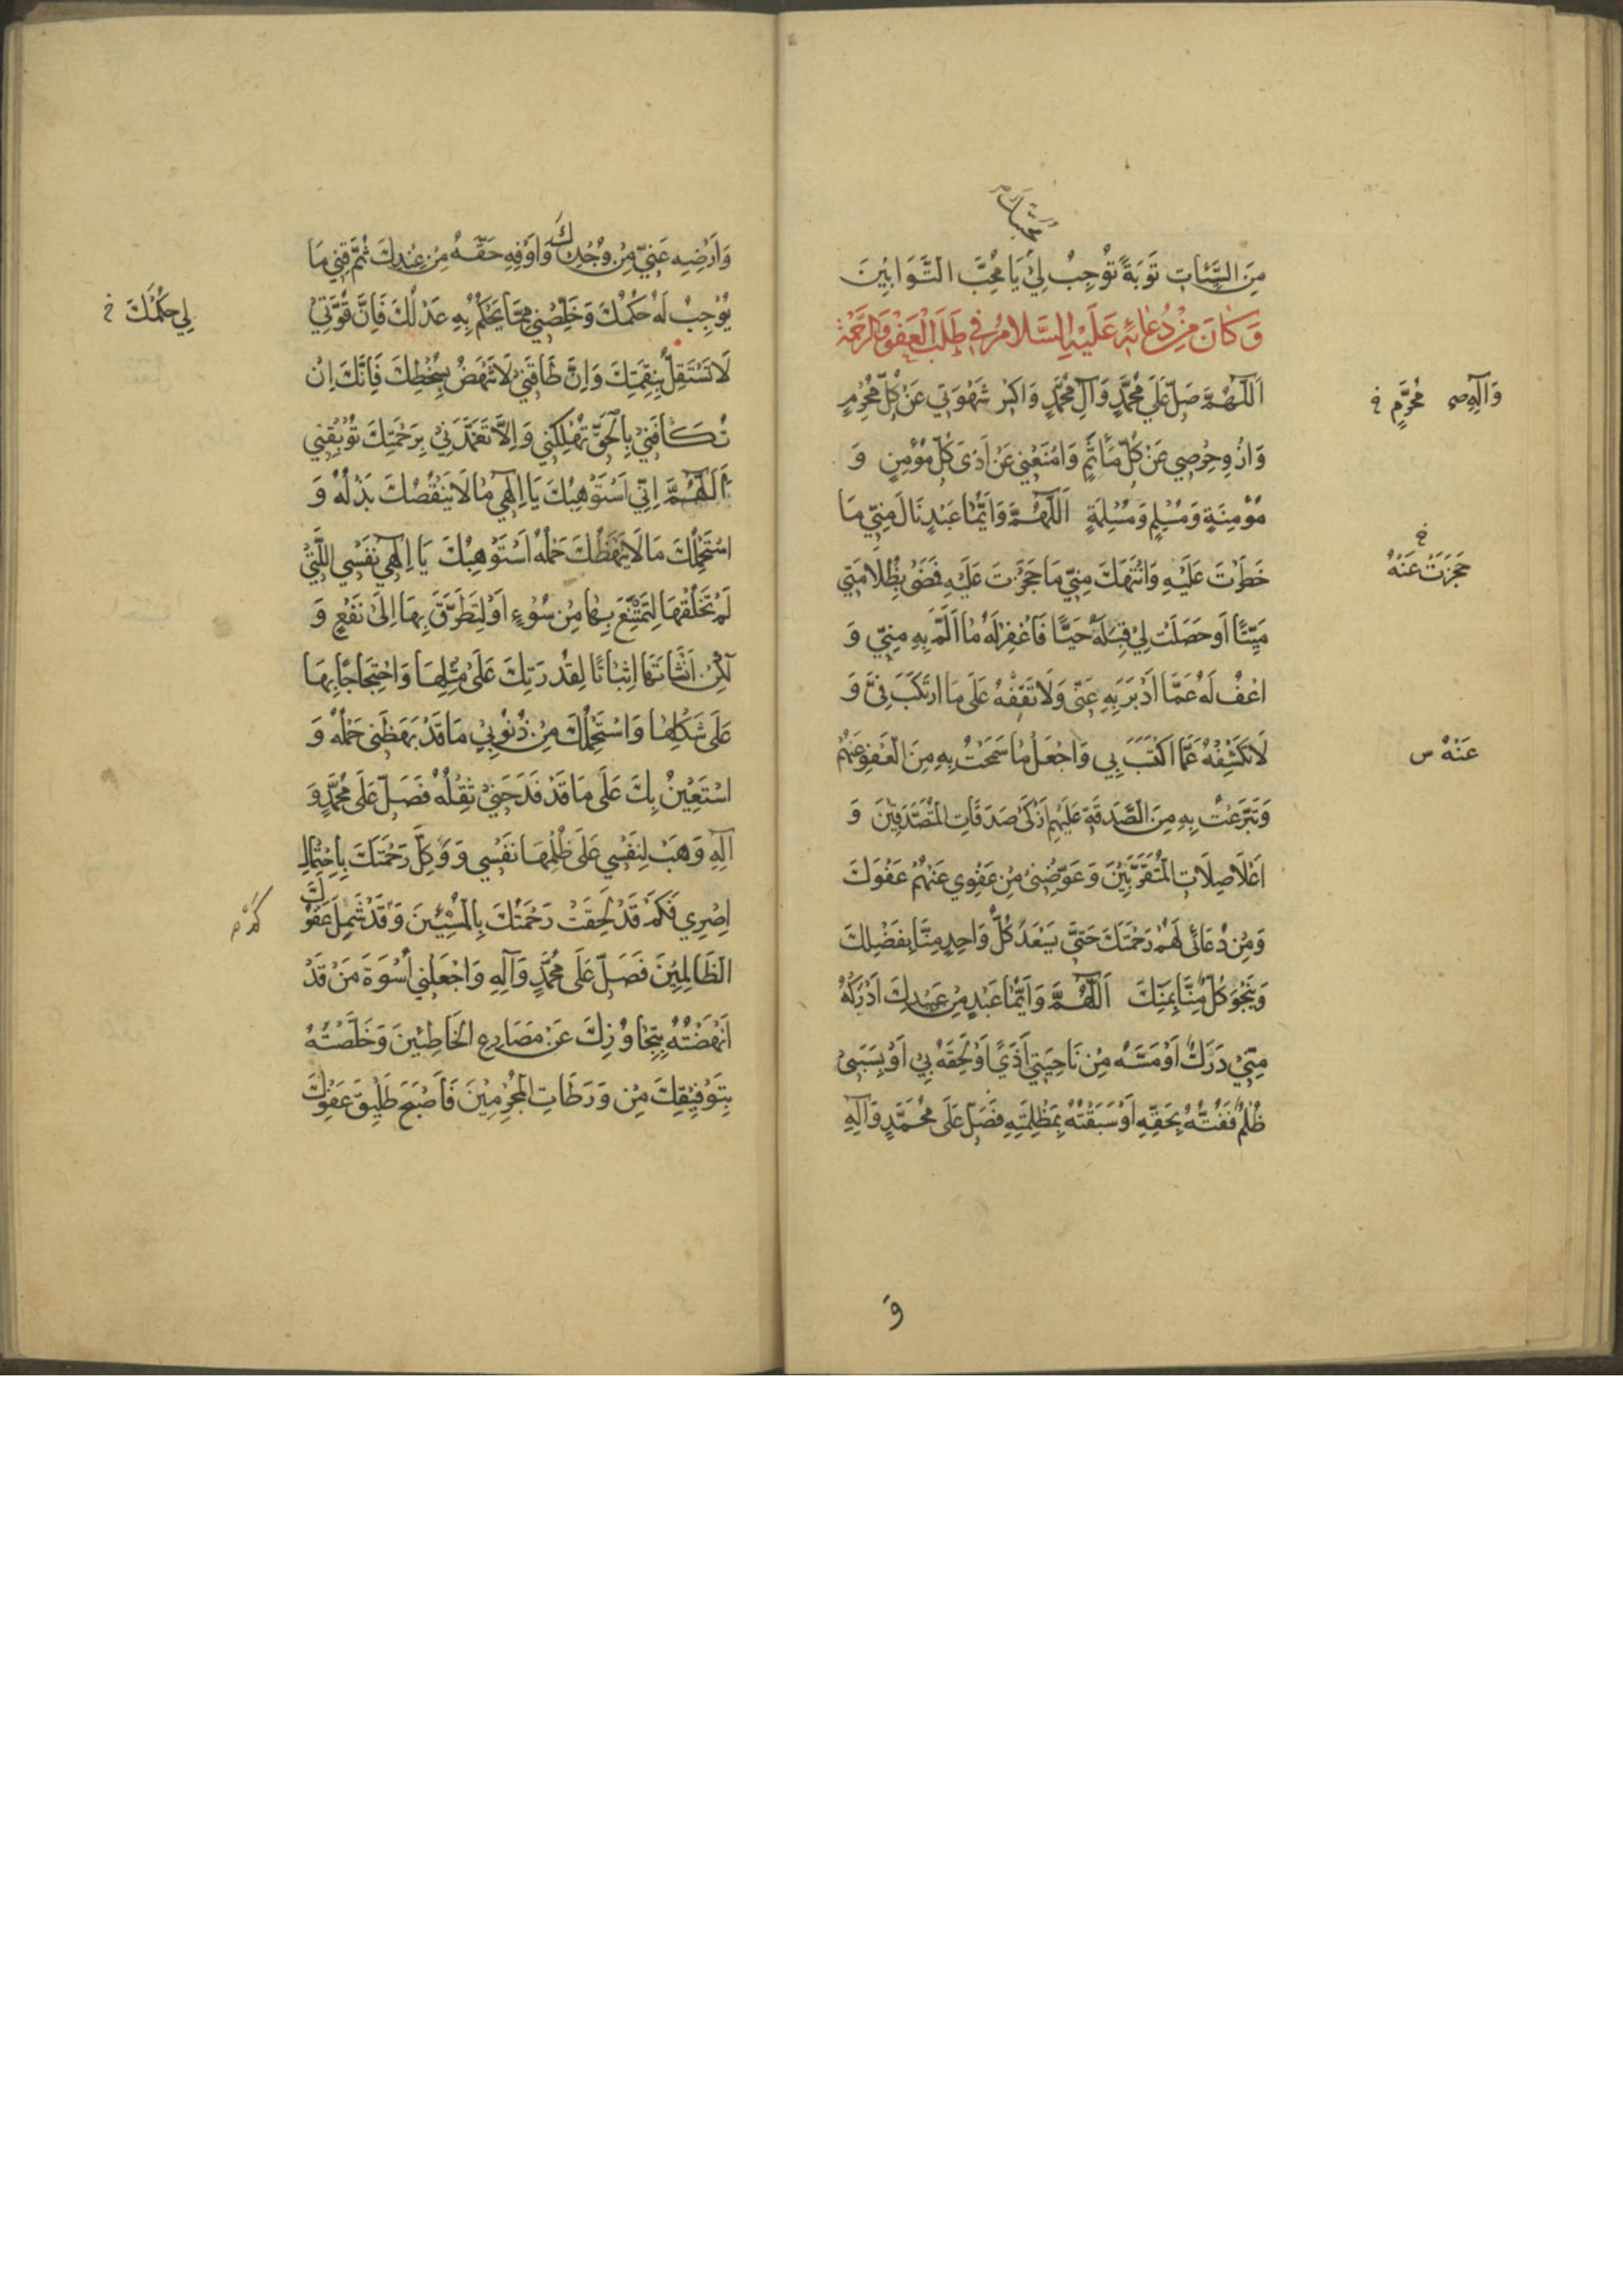 محبتك
مِنَ السَّيِّئاتِ تَوْبَةً تُوجِبُ لِي يَا مُحِبَّ التَّوَّابِيْنَ
وَكَانَ مِنْ دُعَائِهِ عَلَيْهِ السَّلَامُ فِي طَلَبِ الْعَفْوِ وَالرَّحْمَةِ
اَللّٰهُمَّ صَلِّ عَلَى مُحَمَّدٍ وَآلِ مُحَمَّدٍ وَاكْسِرْ شَهْوَتِي عَنْ كُلِّ مَحْرَمٍ
وَازْوِ حِرْصِي عَنْ كُلِّ مَأْثَمٍ وَامْنَعْنِي عَنْ اَذَى كُلِّ مُؤْمِنٍ وَ
مُؤْمِنَةٍ وَمُسْلِمٍ وَمُسْلِمَةٍ اَللّٰهُمَّ وَاَيُّمَا عَبْدٍ نَالَ مِنِّي مَا
خَطَرْتَ عَلَيْهِ وَانْتَهَكَ مِنِّي مَا حَجَزْتَ عَلَيْهِ فَمَضَى بِظُلَامَتِي
مَيِّتًا اَوْ حَصَلَتْ لِيْ قِبَلَهُ حَيًّا فَاغْفِرْ لَهُ مَا اَلَمَّ بِهِ مِنِّي وَ
اعْفُ لَهُ عَمَّا اَدْبَرَ بِهِ عَنِّي وَلَا تَقِفْهُ عَلَى مَا ارْتَكَبَ فِيَّ وَ
لَا تَكْشِفْهُ عَمَّا اكْتَسَبَ بِي وَاجْعَلْ مَا سَمَحْتُ بِهِ مِنَ الْعَفْوِ عَنْهُمْ
وَتَبَرَّعْتُ بِهِ مِنَ الصَّدَقَةِ عَلَيْهِمْ اَزْكَى صَدَقَاتِ الْمُتَصَدِّقِيْنَ وَ
اَعْلَا صِلَاتِ الْمُتَقَرِّبِيْنَ وَعَوِّضْنِي مِنْ عَفْوِي عَنْهُمْ عَفْوَكَ
وَمِنْ دُعَائِي لَهُمْ رَحْمَتَكَ حَتَّى يَسْعَدَ كُلُّ وَاحِدٍ مِنَّا بِفَضْلِكَ
وَيَنْجُوَ كُلٌّ مِنَّا بِمَنِّكَ اَللّٰهُمَّ وَاَيُّمَا عَبْدٍ مِنْ عَبِيْدِكَ اَدْرَكَهُ
مِنِّيْ دَرَكٌ اَوْ مَسَّهُ مِنْ نَاحِيَتِي اَذًى اَوْ لَحِقَهُ بِي اَوْ بِسَبَبِي
ظُلْمٌ فَفُتُّهُ بِحَقِّهِ اَوْ سَبَقْتُهُ بِمَظْلِمَتِهِ فَصَلِّ عَلَى مُحَمَّدٍ وَآلِهِ
وَ
وَآلِهِ صح مُحَرَّمٍ خ
خ
حَجَزْتَ عَنْهُ
عَنْهُ س
وَاَرْضِهِ عَنِّي مِنْ وُجْدِكَ وَاَوْفِهِ حَقَّهُ مِنْ عِنْدِكَ ثُمَّ قِنِي مَا
يُوْجِبُ لَهُ حُكْمُكَ وَخَلِّصْنِي مِمَّا يَحْكُمُ بِهِ عَدْلُكَ فَاِنَّ قُوَّتِي
لَا تَسْتَقِلُّ بِنِقْمَتِكَ وَاِنَّ طَاقَتِي لَا تَنْهَضُ بِسُخْطِكَ فَاِنَّكَ اِنْ
تُكَافِنِي بِالْحَقِّ تُهْلِكْنِي وَاِلَّا تَغَمَّدْنِي بِرَحْمَتِكَ تُوْبِقْنِي
اَللّٰهُمَّ اِنِّي اَسْتَوْهِبُكَ يَا اِلٰهِي مَا لَا يَنْقُصُكَ بَذْلُهُ وَ
اَسْتَحْمِلُكَ مَا لَا يَبْهَظُكَ حَمْلُهُ اَسْتَوْهِبُكَ يَا اِلٰهِي نَفْسِي الَّتِي
لَمْ تَخْلُقْهَا لِتَمْتَنِعَ بِهَا مِنْ سُوْءٍ اَوْ لِتَطَرَّقَ بِهَا اِلَى نَفْعٍ وَ
لٰكِنْ اَنْشَأْتَهَا اِثْبَاتًا لِقُدْرَتِكَ عَلَى مِثْلِهَا وَاحْتِجَاجًا بِهَا
عَلَى شَكْلِهَا وَاَسْتَحْمِلُكَ مِنْ ذُنُوْبِي مَا قَدْ بَهَظَنِي حَمْلُهُ وَ
اَسْتَعِيْنُ بِكَ عَلَى مَا قَدْ فَدَحَنِي ثِقْلُهُ فَصَلِّ عَلَى مُحَمَّدٍ وَ
آلِهِ وَهَبْ لِنَفْسِي عَلَى ظُلْمِهَا نَفْسِي وَوَكِّلْ رَحْمَتَكَ بِاحْتِمَالِ
اِصْرِي فَكَمْ قَدْ لَحِقَتْ رَحْمَتُكَ بِالْمُسِيْئِيْنَ وَقَدْ شَمِلَ عَفْوُكَ
الظَّالِمِيْنَ فَصَلِّ عَلَى مُحَمَّدٍ وَآلِهِ وَاجْعَلْنِي اُسْوَةَ مَنْ قَدْ
اَنْهَضْتَهُ بِتَجَاوُزِكَ عَنْ مَصَارِعِ الْخَاطِئِيْنَ وَخَلَّصْتَهُ
بِتَوْفِيْقِكَ مِنْ وَرَطَاتِ الْمُجْرِمِيْنَ فَاَصْبَحَ طَلِيْقَ عَفْوِكَ
لِي حُكْمُكَ خ